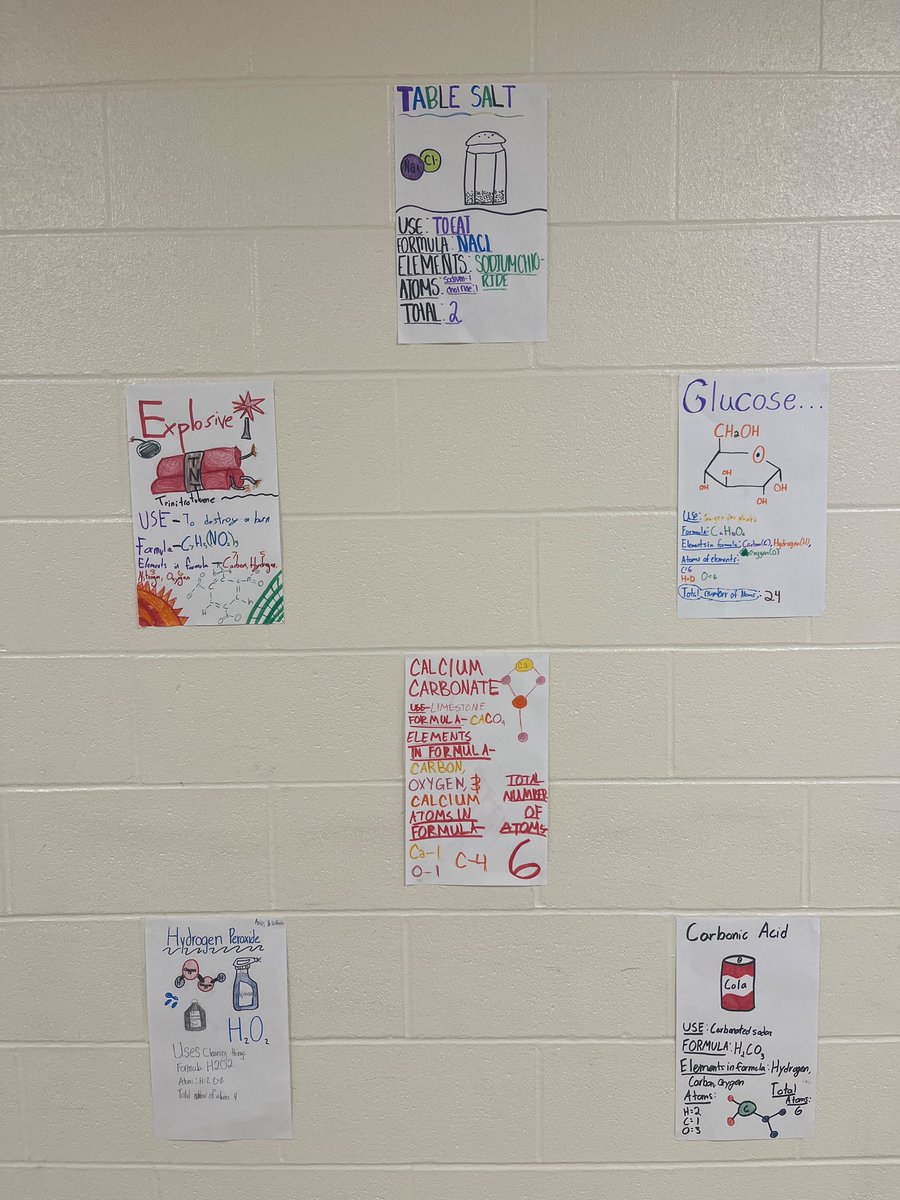 TABLE SALT
Na+ Cl-
USE: TO EAT
FORMULA: NACl
ELEMENTS: SODIUM CHLO-
RIDE
ATOMS: Sodium-1
Choloride: 1
TOTAL: 2
Explosive
TNT
Trinitrotoluene
USE - To destroy a burn
Formula - C7H5(NO2)3
Elements in formula → Carbon, Hydrogen,
7 5
Nitrogen, Oxygen
3 6
Glucose...
CH2OH
O
OH OH OH OH
Use: Sugar for plants
Formula: C6H12O6
Elements in formula: Carbon(C), Hydrogen(H),
Oxygen(O)
Atoms of elements:
C=6
O=6
Total number of Atoms: 24
CALCIUM
CARBONATE
Ca
USE-LIMESTONE
FORMULA- CACO4
ELEMENTS
IN FORMULA-
CARBON,
OXYGEN, &
CALCIUM
ATOMS IN
FORMULA-
Ca-1
O-1
C-4
TOTAL
NUMBER
OF
ATOMS
6
Hydrogen Peroxide
H H
H2O2
Uses Cleaning things
Formula H2O2
Atom: H-2 O-2
Total number of atoms 4
Carbonic Acid
Cola
USE: Carbonated sodas
FORMULA: H2CO3
Elements in formula: Hydrogen,
Carbon, Oxygen
Atoms:
H=2
C=1
O=3
C
Total
Atoms:
6